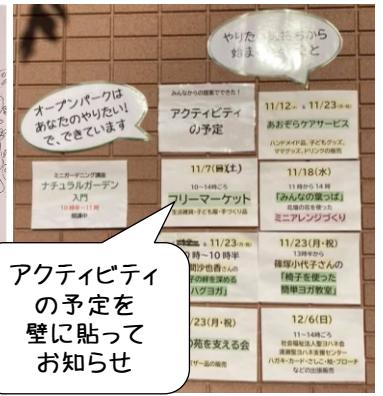 オープンパークは
あなたのやりたい!
で、できています
やりたい
始ま
みんなからの提案でできた!
アクティビティ
の予定
11/12
11/23
あおぞらケアサービス
ハンドメイド品、子どもグッズ、
ママグッズ、ドリンクの販売
ミニガーデニング講座
ナチュラルガーデン
入門
10時半~11時
開講中
11/7(土)
10~14時ごろ
フリーマーケット
生活雑貨・子ども服・手づくり品
11/18(水)
11時から14時
「みんなの葉っぱ」
花壇の花を使った
ミニアレンジづくり
11/23
時~10時半
間沙也香さんの
子の絆を深める
ハグヨガ」
11/23(月・祝)
13時半から
篠塚小代子さんの
「椅子を使った
簡単ヨガ教室」
/23(月・祝)
苑を支える会
ザー品の販売
12/6(日)
11~14時ごろ
社会福祉法人聖ヨハネ会
ハガキ・カード・さしこ・絵・ブローチ
などの出張販売
アクティビティ
の予定を
壁に貼って
お知らせ